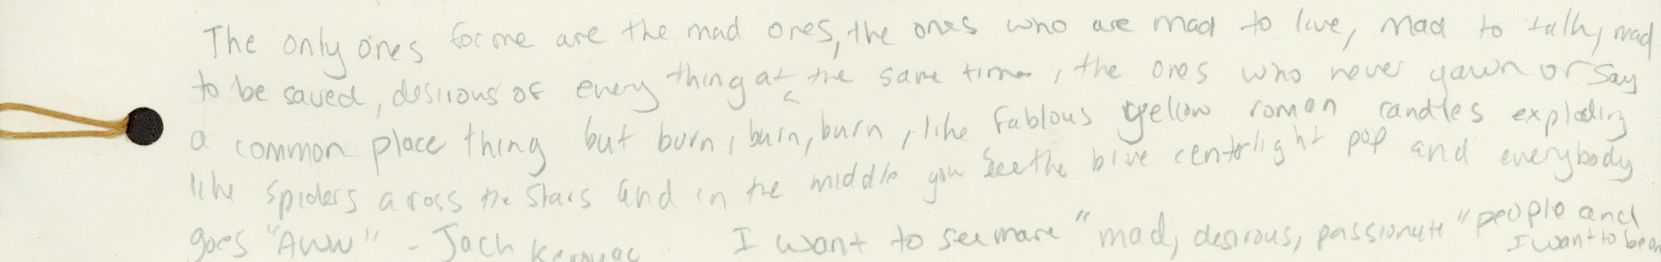 The only ones for me are the mad ones, the ones who are mad to live, mad to talk, mad
to be saved, desirous of every thing at the same time, the ones who never yawn or say
a common place thing but burn, burn, burn, like fablous yellow roman candles exploding
like spiders across the stars and in the middle you see the blue centerlight pop and everybody
goes "Aww" - Jack Kerouac I want to see more "mad, desirous, passionate" people and
I want to be on